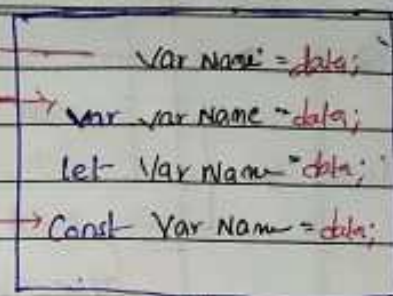 Var Name = data;
var var Name = data;
let Var Name = data;
Const Var Name = data;